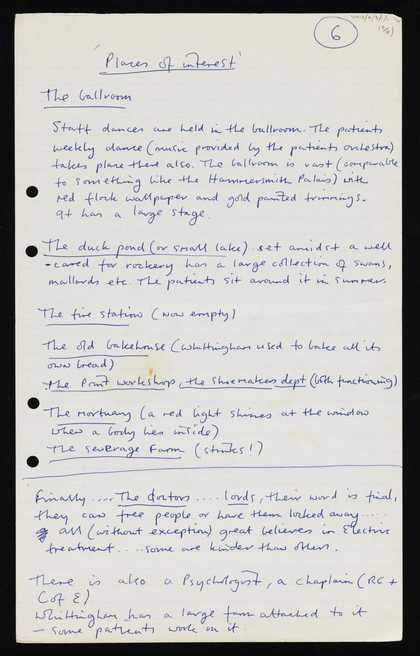 6
'Places of interest'
The ballroom
Staff dances are held in the ballroom. The patients
weekly dance (music provided by the patients orchestra)
takes place there also. The ballroom is vast (comparable
to something like the Hammersmith Palais) with
red flock wallpaper and gold painted trimmings.
It has a large stage.
The duck pond (or small lake) set amidst a well
-cared for rockery has a large collection of swans,
mallards etc. The patients sit around it in summer.
The fire station (now empty)
The old bakehouse (Whittingham used to bake all its
own bread)
The Print workshop, the shoemakers dept (both functioning)
The Mortuary (a red light shines at the window
when a body lies inside)
The sewerage Farm (stinks!)
Finally .... The doctors .... lords, their word is final,
they can free people or have them locked away ....
all (without exception) great believers in Electric
treatment .... some are kinder than others.
There is also a Psychologist, a chaplain (RC +
C of E)
Whittingham has a large farm attached to it
- some patients work on it